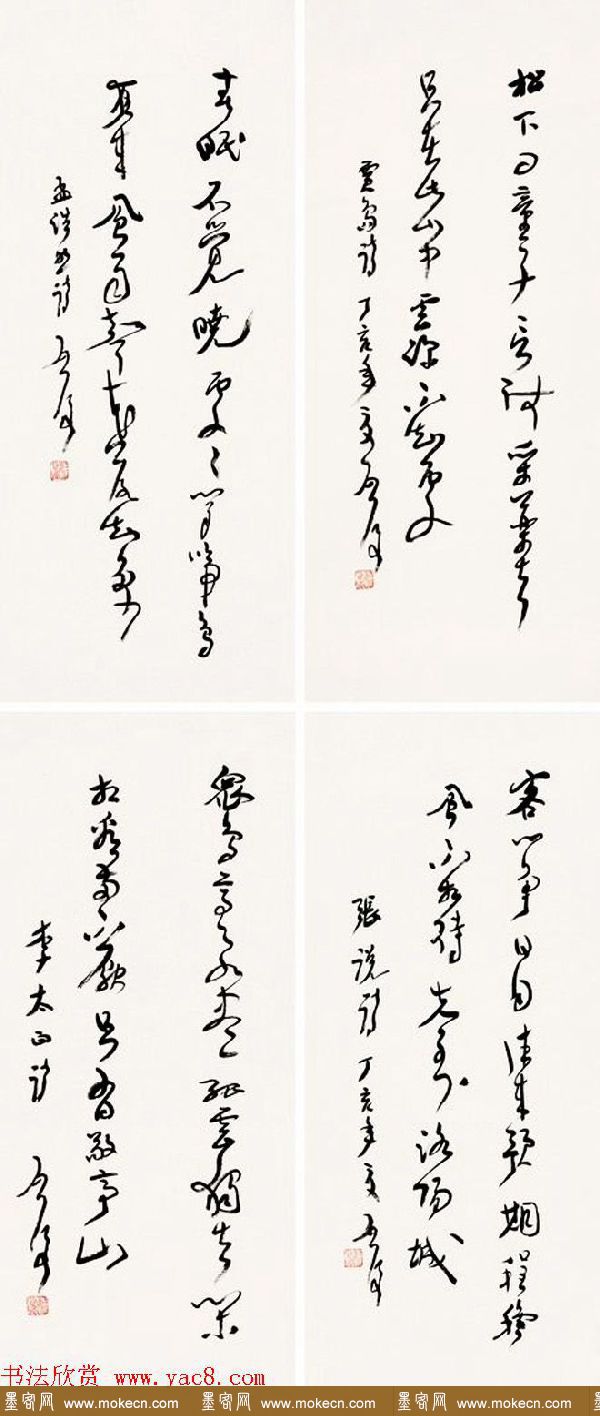 松下問童子言師采藥去
只在此山中雲深不知處
賈島詩丁亥年夏
春眠不覺曉處々聞啼鳥
夜来風雨聲花落知多少
孟浩然詩
客心爭日月往来預期程穐
風不相待先至洛陽城
張說詩丁亥年夏
眾鳥高飛盡孤雲獨去閑
相看兩不厭只有敬亭山
李太白詩
书法欣赏 www.yac8.com
墨客网 www.mokecn.com 墨客网 www.mokecn.com 墨客网 www.mokecn.com